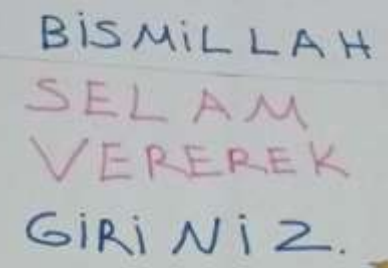 BiSMiLLAH
SELAM
VEREREK
GiRiNiZ.